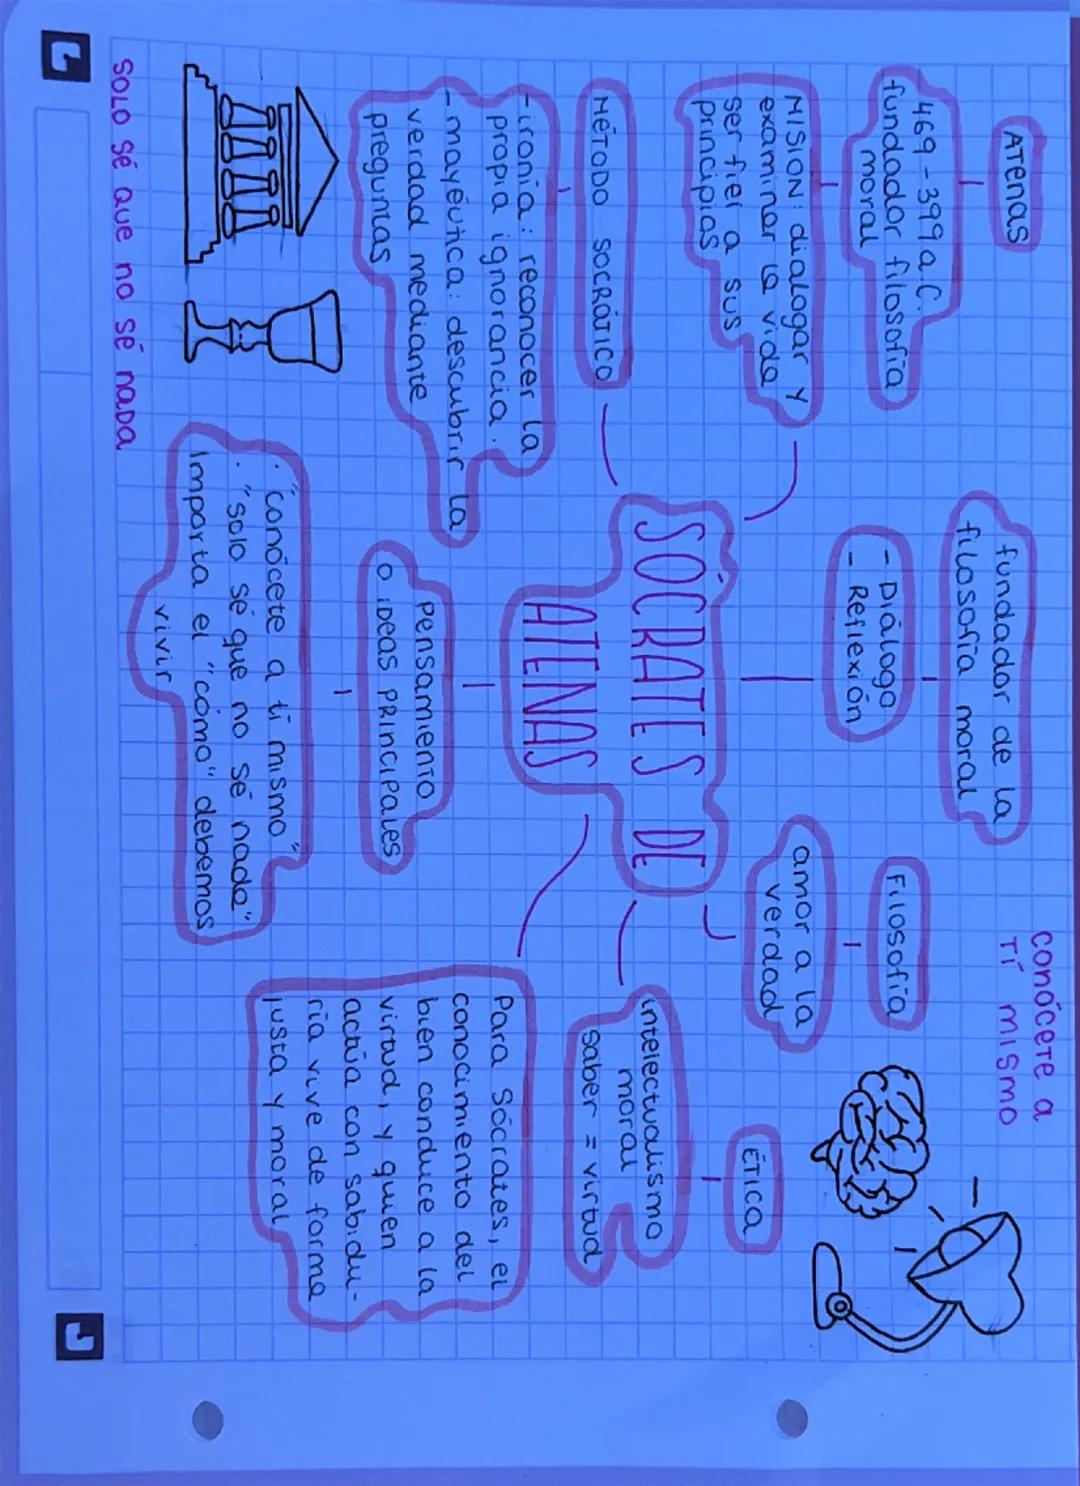 conócete a
tí mismo
Atenas
469 - 399 a.C.
fundador filosofía
moral
MISIÓN: dialogar y
examinar la vida
ser fiel a sus
principios
fundador de la
filosofía moral
- Diálogo
- Reflexión
Filosofía
amor a la
verdad
ÉTICA
intelectualismo
moral
saber = virtud
SÓCRATES DE
ATENAS
MÉTODO SOCRÁTICO
- ironía: reconocer la
propia ignorancia.
- mayéutica: descubrir la
verdad mediante
preguntas
Pensamiento
o ideas principales
· "conócete a ti mismo"
· "solo sé que no sé nada"
importa el "cómo" debemos
vivir
Para Sócrates, el
conocimiento del
bien conduce a la
virtud, y quien
actúa con sabidu-
ría vive de forma
justa y moral
solo sé que no sé nada